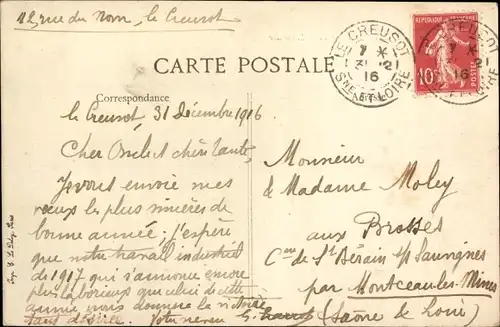 12, rue du Nord, le Creusot
LE CREUSOT
7 *
31 -12
16
SNE ET LOIRE
REPUBLIQUE FRANÇAISE
10
CARTE POSTALE
Correspondance
le Creusot, 31 Décembre 1916
Cher Oncle et chère tante,
Je vous envoie mes
vœux les plus sincères de
bonne année ; j'espère
que notre travail industriel
de 1917 qui s'annonce encore
plus laborieux que celui de cette
année nous donnera la victoire
tant désirée. Votre neveu
Monsieur
& Madame Moley
aux Brosses
Cne de St Bérain s/s Sanvignes
par Montceau-les-Mines
(Saône & Loire)